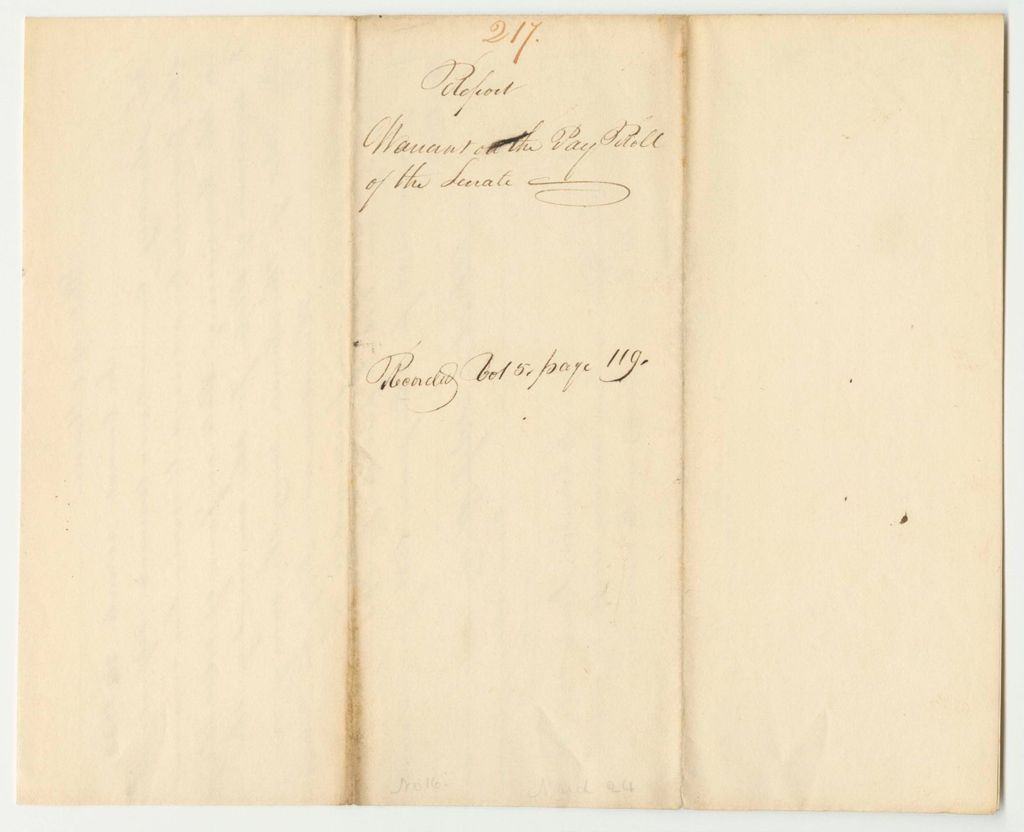 217.
Report
Warrant on the Pay Roll
of the Senate
Recorded Vol 5. page 119.
No 16. March 24